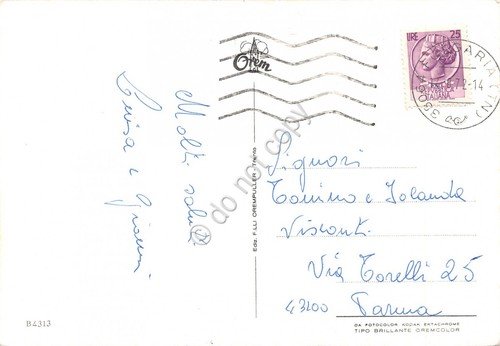 Orem
LIRE 25
ITALIANA
Molti saluti
Luisa e Gianni
do not copy
Ediz. F.LLI OREMPULLER - Trento
Signori
Tonino e Iolanda
Visconti
Via Torelli 25
43100 Parma
B4313
DA FOTOCOLOR KODAK EKTACHROME
TIPO BRILLANTE OREMCOLOR